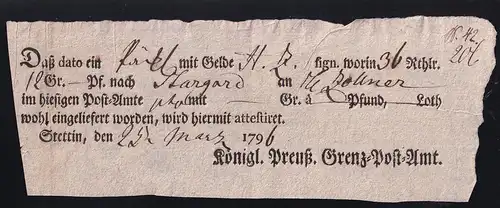 N. 42
206
Daß dato ein Päckl mit Gelde H. Z. sign. worin 36 Rthlr.
12 Gr. — Pf. nach Stargard an
im hiesigen Post-Amte mit — Gr. à Pfund, — Loth
wohl eingeliefert worden, wird hiermit attestiret.
Stettin, den 25 Martz 1796
Königl. Preuß. Grenz-Post-Amt.